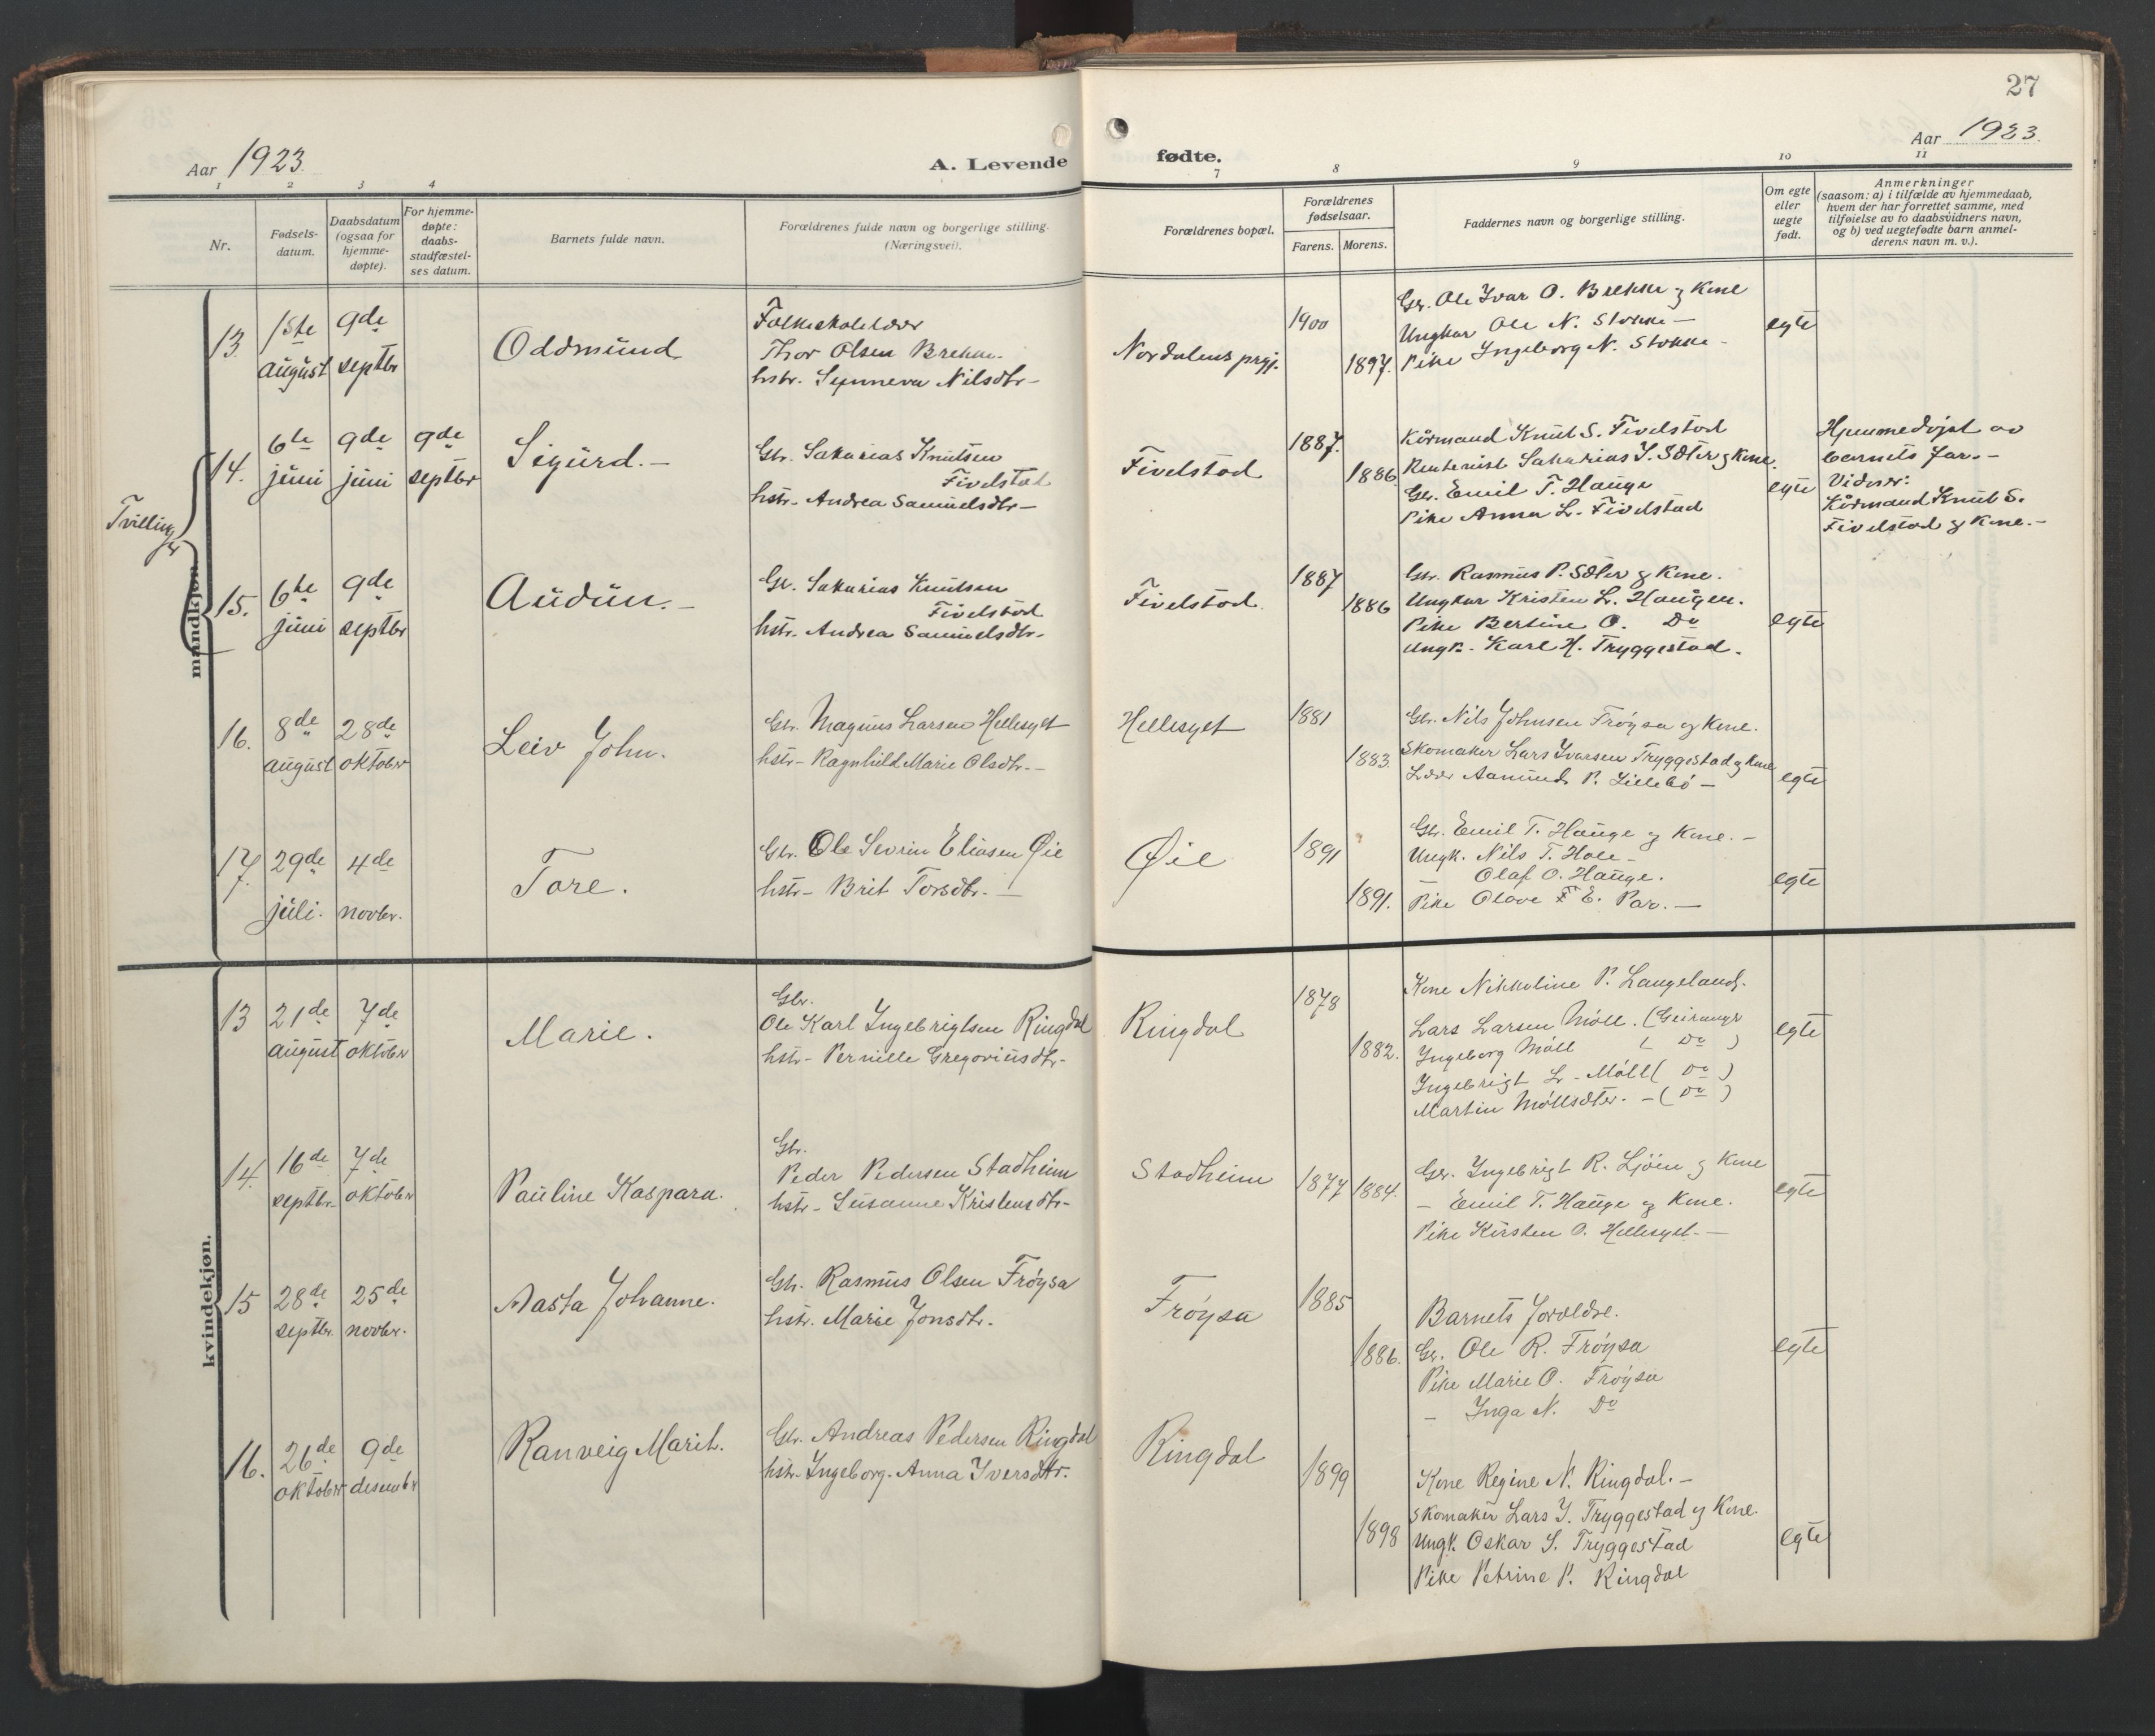 27
Aar 1923.
A. Levende fødte.
Aar 1923.
1 2 3 4 7 8 9 10 11
Nr.
Fødsels-
datum.
Daabsdatum
(ogsaa for
hjemme-
døpte).
For hjemme-
døpte:
daabs-
stadfæstel-
ses datum.
Barnets fulde navn.
Forældrenes fulde navn og borgerlige stilling.
(Næringsvei).
Forældrenes bopæl.
Forældrenes
fødselsaar.
Farens. Morens.
Faddernes navn og borgerlige stilling.
Om egte
eller
uegte
født.
Anmerkninger
(saasom: a) i tilfælde av hjemmedaab,
hvem der har forrettet samme, med
tilføielse av to daabsvidners navn,
og b) ved uegtefødte barn anmel-
derens navn m. v.).
mandkjøn.
13. 1ste august 9de septbr
Oddmund
Folkeskolelærer
Thor Olsen Brekke.
hstr. Synneva Nilsdtr-
Nordalens prgj.
1900 1897.
Gbr. Ole Ivar O. Brekke og Kone
Ungkar Ole N. Stokke -
Pike Ingeborg N. Stokke -
egte
Tvillinger
14. 6te juni 9de juni 9de septbr
Sigurd. -
Gbr. Sakarias Knutsen
Fivelstad
hstr- Andrea Samuelsdtr-
Fivelstad
1887. 1886.
Kårmand Knut S. Fivelstad
Rentenist Sakarias I. Sæter og Kone.
Gbr. Emil T. Hauge
Pike Anna L. Fivelstad
egte
Hjemmedøpt av
barnets far. -
Vidner:
Kårmand Knut S.
Fivelstad og Kone. -
15. 6te juni 9de septbr
Audun. -
Gbr. Sakarias Knutsen
Fivelstad
hstr. Andrea Samuelsdtr-
Fivelstad.
1887 1886
Gbr. Rasmus P. Sæter og Kone.
Ungkar Kristen L. Haugen.
Pike Bertine O. Do
Ungk. Karl H. Tryggestad.
egte
16. 8de august 28de oktober
Leiv John.
Gbr. Magnus Larsen Hellesylt
hstr- Ragnhild Marie Olsdtr. -
Hellesylt
1881 1883.
Gbr. Nils Johnsen Frøysa og Kone.
Skomaker Lars Ivarsen Tryggestad og Kone
Lærer Aamund P. Lillebø -
egte
17. 29de juli. 4de novbr.
Tore.
Gbr. Ole Severin Eliasen Øie
hstr- Brit Torsdtr. -
Øie
1891 1891.
Gbr. Emil T. Hauge og Kone. -
Ungk. Nils T. Hole -
Olaf O. Hauge.
Pike Olave E. Par. -
egte
kvindekjøn.
13 21de august 7de oktober
Marie.
Gbr.
Ole Karl Ingebrigtsen Ringdal
hstr- Pernille Gregoriusdtr-
Ringdal
1878 1882.
Kone Nikkoline P. Langeland.
Lars Larsen Möll. (Geiranger
Ingeborg Möll ( Do )
Ingebrigt L. Möll ( Do )
Martin Möllsæter. - ( Do )
egte
14. 16de septbr- 7de oktober
Pauline Kaspara.
Gbr.
Peder Pedersen Stadheim
hstr- Susanne Kristensdtr-
Stadheim
1877 1884.
Gbr. Ingebrigt R. Ljøen og Kone
- Emil T. Hauge og Kone.
Pike Kirsten O. Hellesylt. -
egte
15 28de septbr. 25de novbr.
Aasta Johanne.
Gbr. Rasmus Olsen Frøysa
hstr. Marie Jonsdtr.
Frøysa
1885 1886.
Barnets forældre.
Gbr. Ole R. Frøysa
Pike Marie O. Frøysa
- Inga N. Do
egte
16. 26de oktober 9de desember
Ranveig Marit.
Gbr. Andreas Pedersen Ringdal
hstr- Ingeborg-Anna Iversdtr.
Ringdal
1899 1898
Kone Regine N. Ringdal. -
Skomaker Lars I. Tryggestad og Kone.
Ungk. Oskar S. Tryggestad
Pike Petrine P. Ringdal
egte